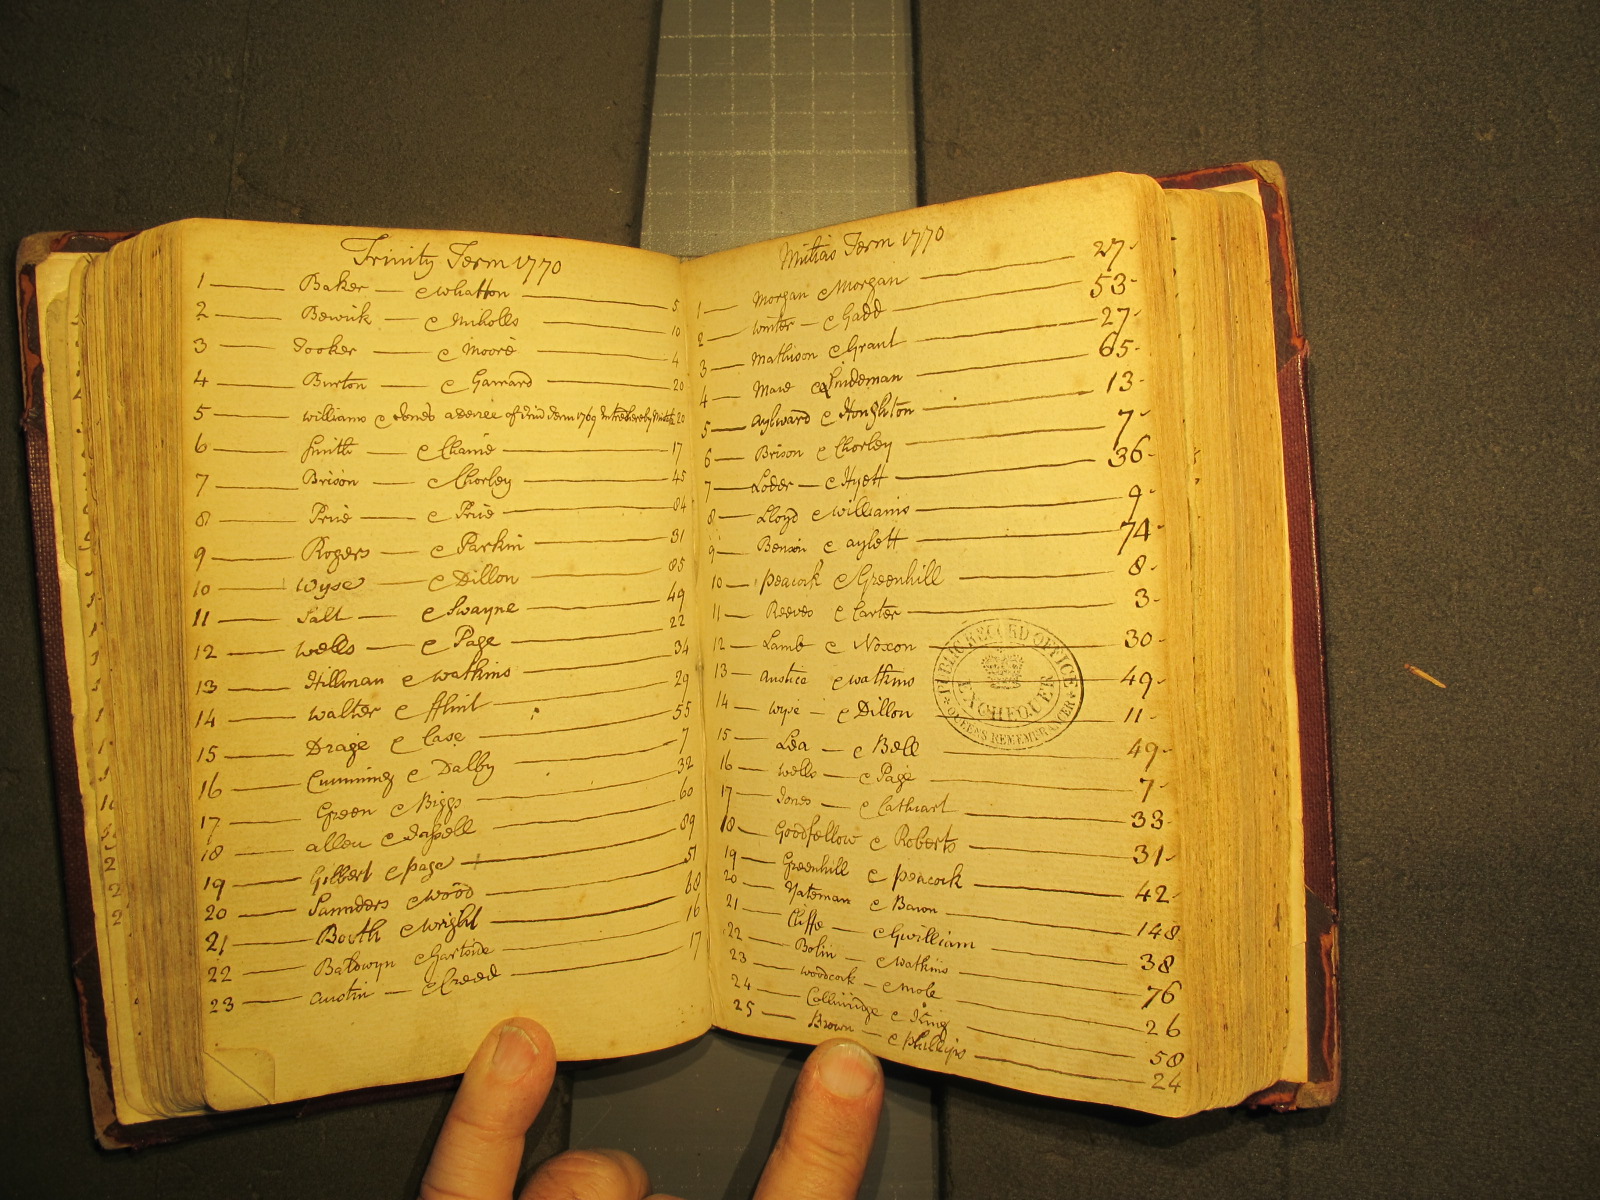 Trinity Term 1770
1 Baker c Whatton 5
2 Bewick c Nicholls 10
3 Tooker c Moore 4
4 Burton c Garrard 20
5 Williams c Jones a decree of Trin Term 1769 20
6 Smith c 17
7 Brison c Chorley 45
8 Price c Price 84
9 Rogers c Parkin 31
10 Wyse c Dillon 85
11 Salt c Swayne 49
12 Wells c Page 22
13 Hillman c Watkins 34
14 Walter c Flint 29
15 Drage c Case 55
16 Cumming c Dalby 7
17 Green c Biggs 32
18 Allen c 60
19 Gilbert c Page 89
20 Saunders c Wood 51
21 Booth c Wright 68
22 Baldwyn c Garside 16
23 Austin c Creed 17
Michas Term 1770
1 Morgan c Morgan 27
2 Winter c Gadd 53
3 Mathison c Grant 27
4 c Lindeman 65
5 Aylward c Houghton 13
6 Brison c Chorley 7
7 Loder c Hyett 36
8 Lloyd c Williams 9
9 Benson c Aylett 74
10 Peacock c Greenhill 8
11 Reeves c Carter 3
12 Lamb c Noxon 30
13 Austice c Watkins 49
14 Wyse c Dillon 11
15 Lea c Bell 49
16 Wells c Page 7
17 Jones c Cathcart 33
18 Goodfellow c Roberts 31
19 Greenhill c Peacock 42
20 Yateman c Baron 148
21 Cliffe c Gwilliam 38
22 Bolin c Watkins 76
23 Woodcock c Mole 26
24 Collinridge c King 58
25 Brown c Phillips 24
PUBLIC RECORD OFFICE
EXCHEQUER
QUEENS REMEMBRANCER